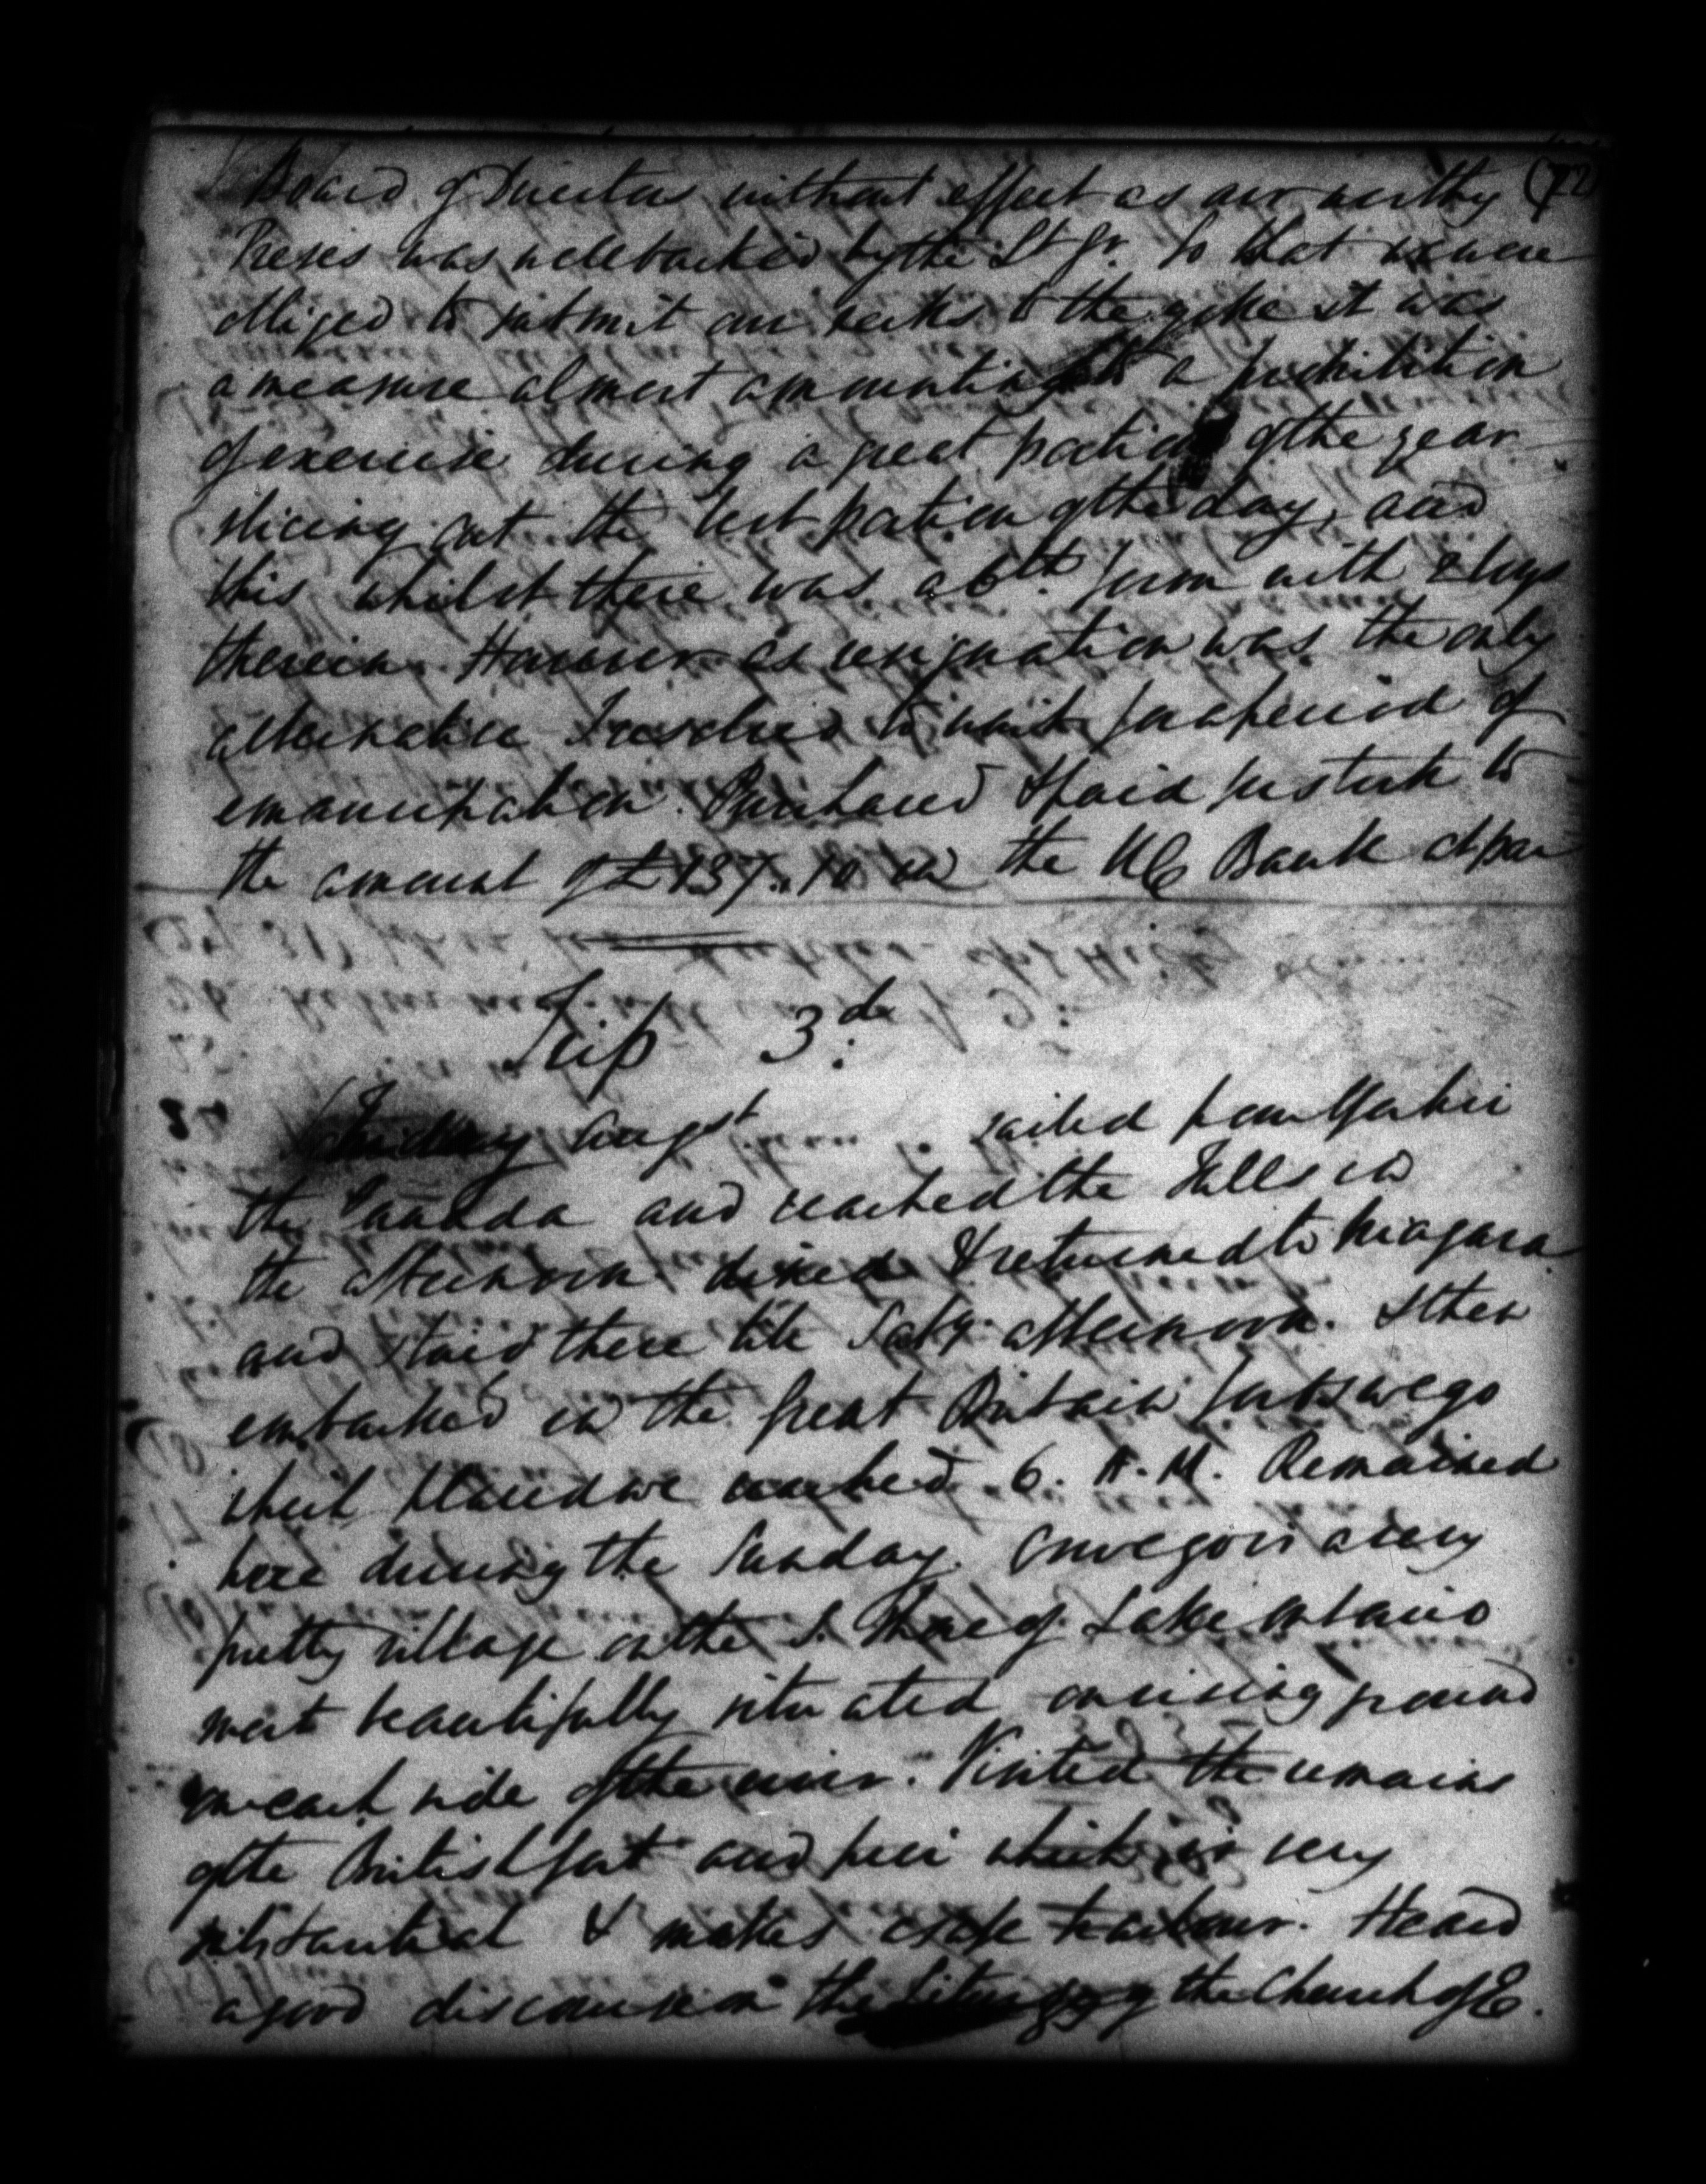 (72)
Board of Directors without effect as our worthy
Preses was well backed by the Lt Gr. So that we were
obliged to submit our necks to the yoke it was
a measure almost amounting to a prohibition
of exercise during a great portion of the year
slicing out the best portion of the day, and
this whilst there was a 6th. form with 2 boys
therein. However as resignation was the only
alternative I resolved to wait for a period of
emancipation. Purchased & paid for stock to
the amount of £137..10 in the UC Bank at par
Trip 3.d
Friday Augst. sailed from York in
the Canada and reached the Falls in
the afternoon dined & returned to Niagara
and staid there till Saty. afternoon. & then
embarked in the Great Britain for Oswego
which place we reached 6. A.M. Remained
here during the Sunday. Owego is a very
pretty village on the S. Shore of Lake Ontario
most beautifully situated on rising ground
on each side of the river. Visited the remains
of the British fort and pier which is very
substantial & makes a safe harbour. Heard
a good discourse in the Liturgy of the Church of E.